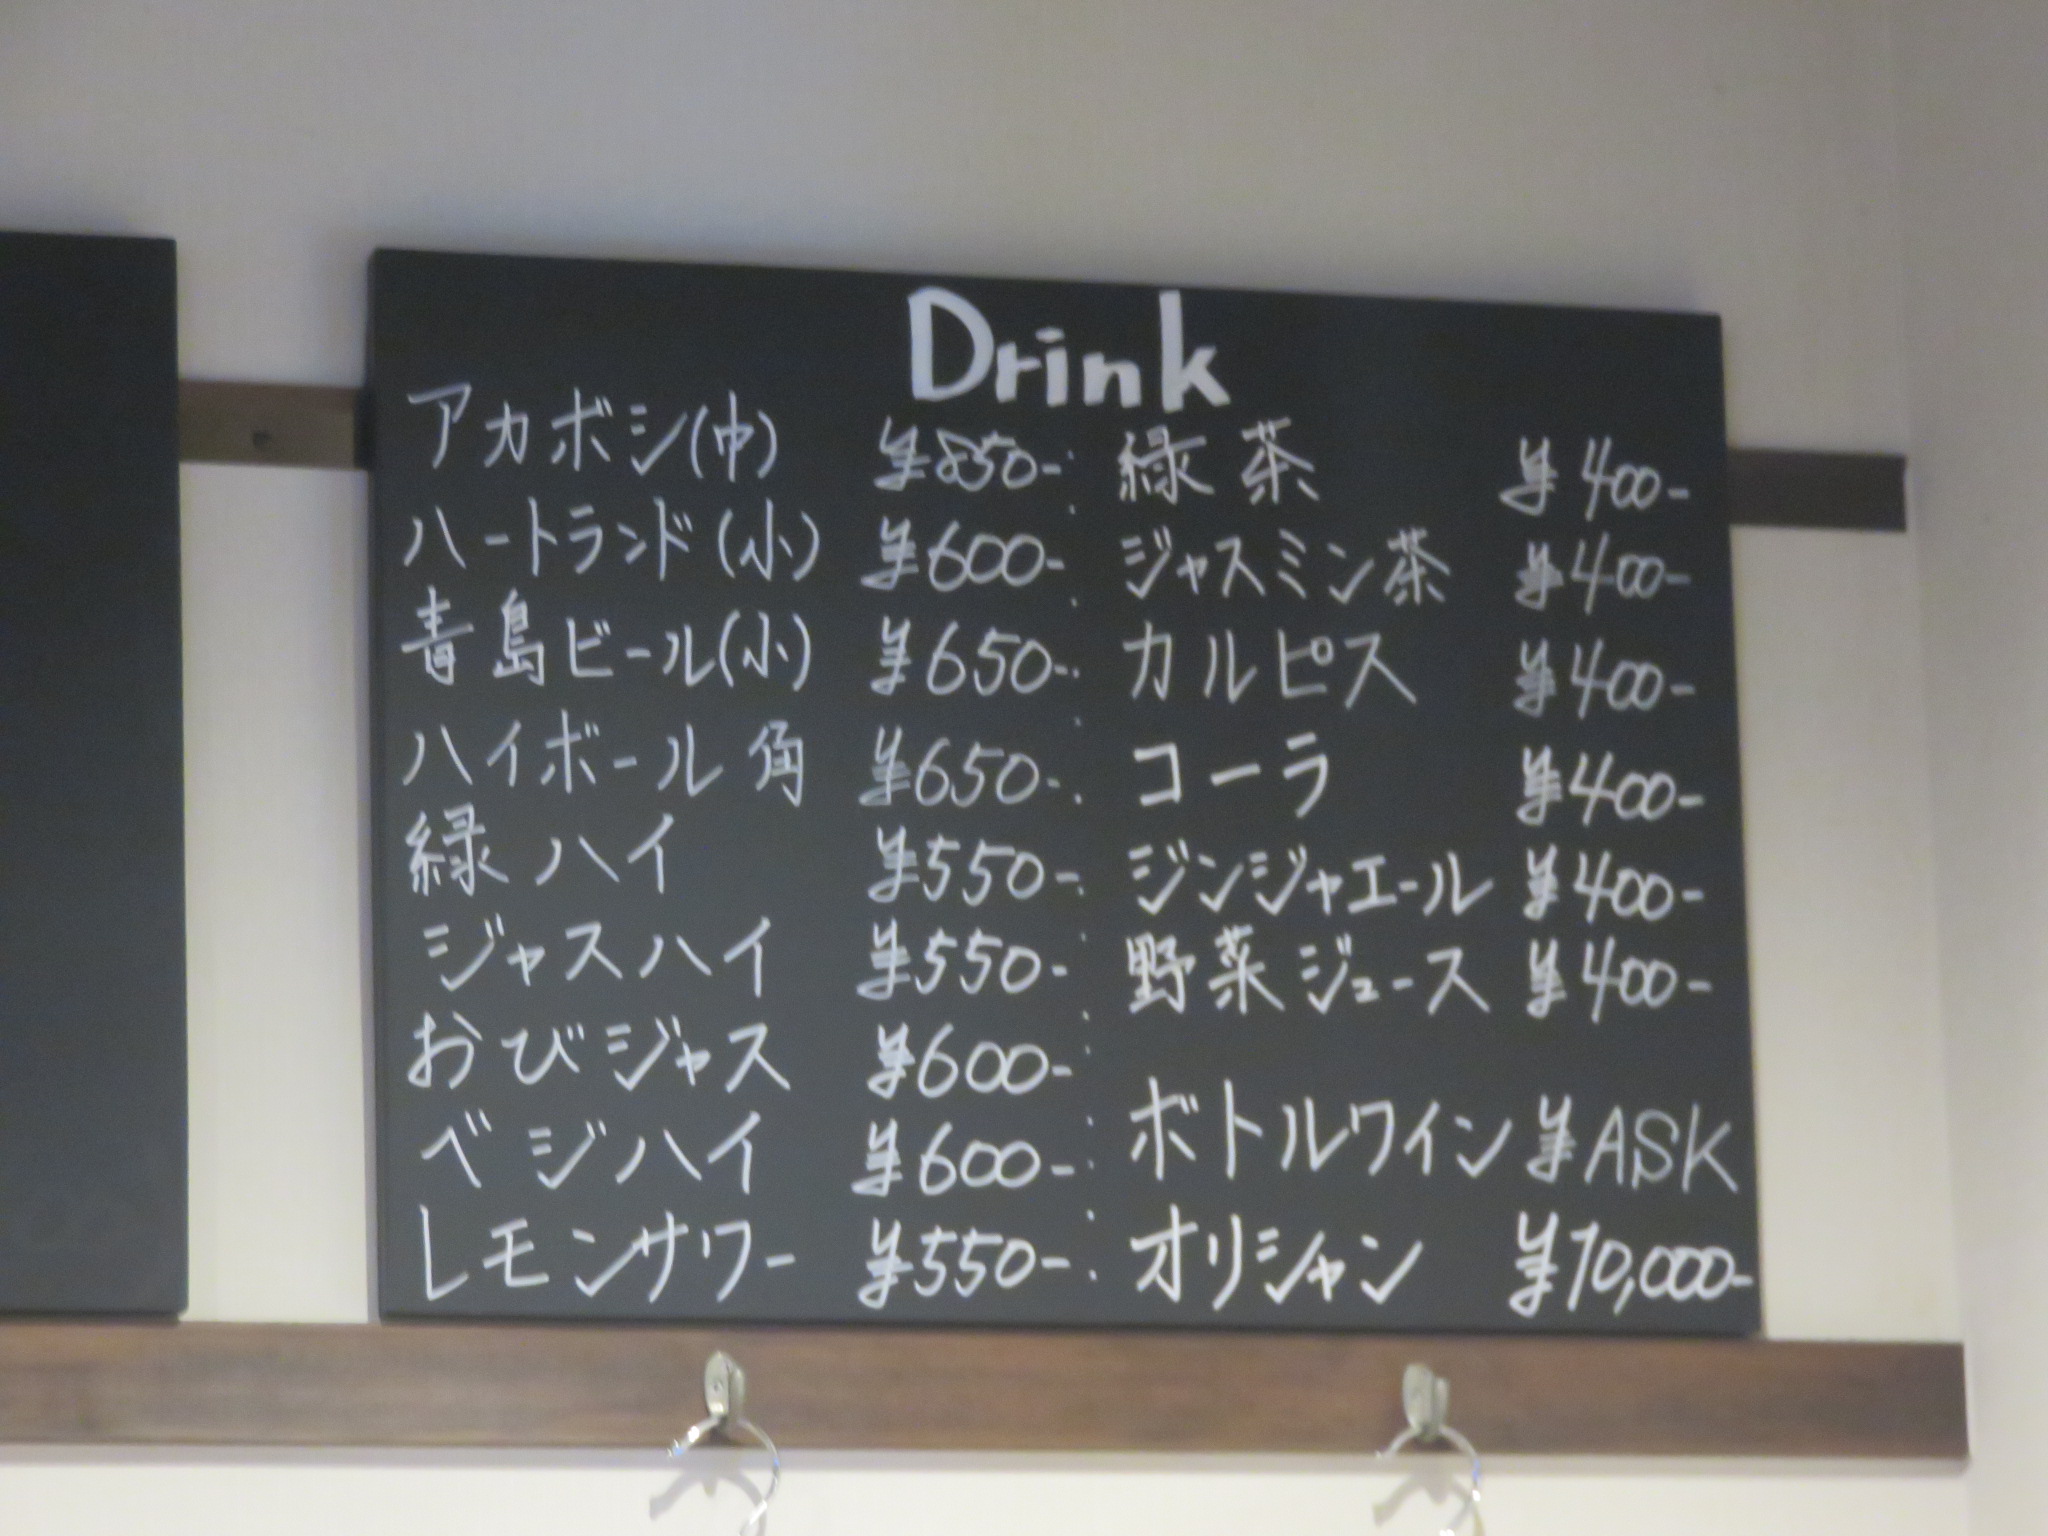 Drink
アカボシ(中) ¥850-
ハートランド(小) ¥600-
青島ビール(小) ¥650-
ハイボール 角 ¥650-
緑ハイ ¥550-
ジャスハイ ¥550-
おびジャス ¥600-
ベジハイ ¥600-
レモンサワー ¥550-
緑茶 ¥400-
ジャスミン茶 ¥400-
カルピス ¥400-
コーラ ¥400-
ジンジャエール ¥400-
野菜ジュース ¥400-
ボトルワイン ¥ASK
オリシャン ¥10,000-